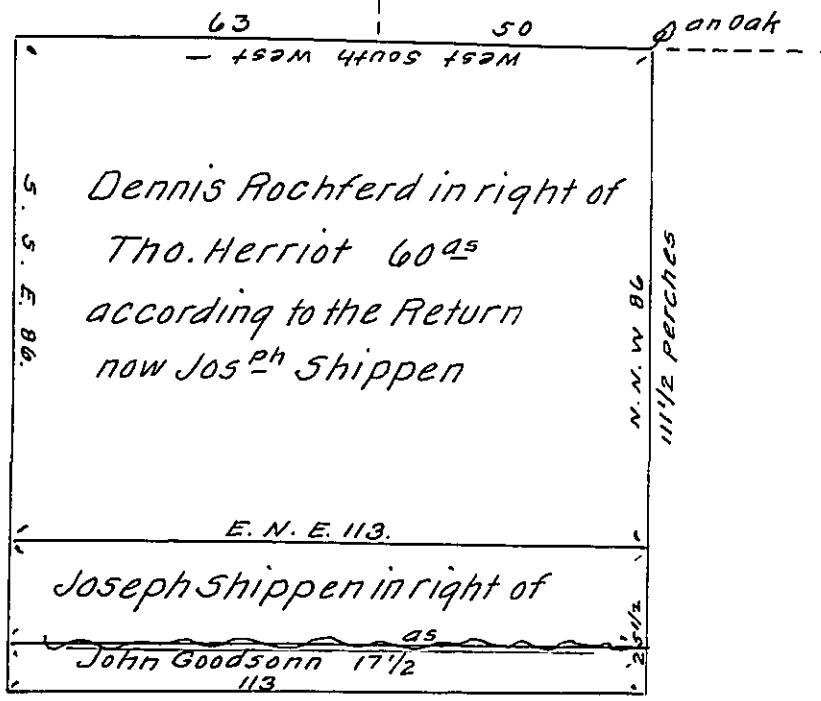 63 50 an Oak
West South West —
Dennis Rochferd in right of
Tho. Herriot 60 as
according to the Return
now Jos ph Shippen
S. S. E. 86.
N. N. W 86
111 1/2 perches
E. N. E. 113.
Joseph Shippen in right of
as
John Goodsonn 17 1/2
113
25 1/2